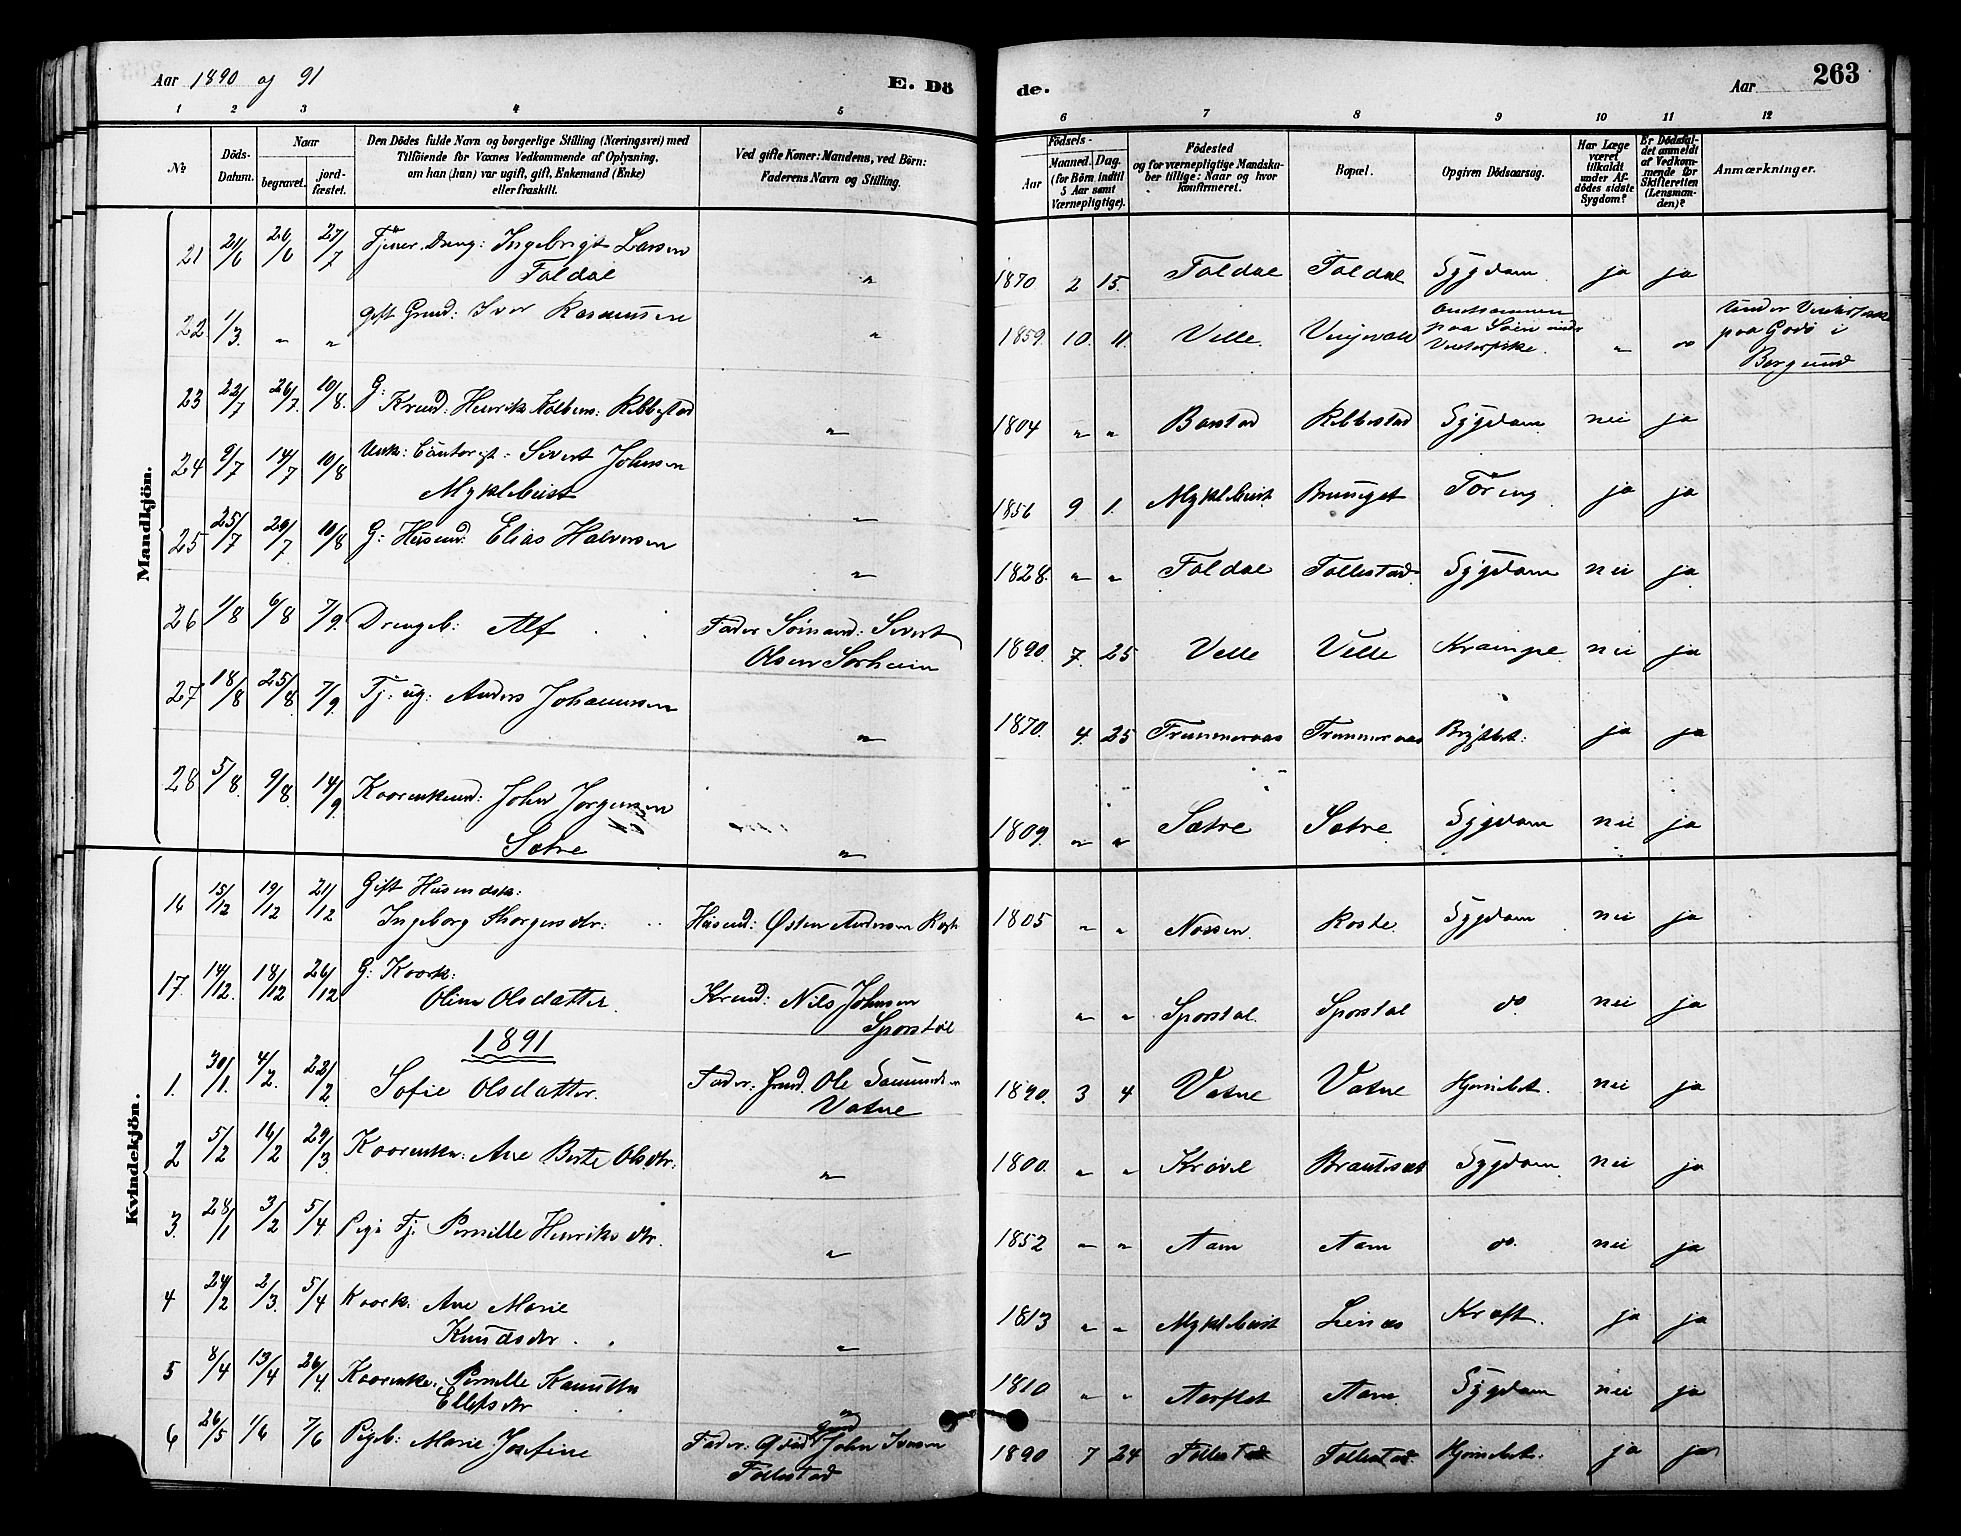 Aar 1890 og 91
E. Dö
de.
Aar
263
1 2 3 4 5 6 7 8 9 10 11 12
No
Döds-Datum.
Naar
begravet.
jordfæstet.
Den Dödes fulde Navn og borgerlige Stilling (Næringsvei) med
Tilföiende for Voxnes Vedkommende af Oplysning,
om han (hun) var ugift, gift, Enkemand (Enke)
eller fraskilt.
Ved gifte Koner: Mandens, ved Börn:
Faderens Navn og Stilling.
Födsels-
Aar
Maaned. Dag.
(for Börn indtil
5 Aar samt
Værnepligtige).
Födested
og for værnepligtige Mandska-
ber tillige: Naar og hvor
konfirmeret.
Bopæl.
Opgiven Dödsaarsag.
Har Læge
været
tilkaldt
under Af-
dödes sidste
Sygdom?
Er Dödsfal-
det anmeldt
af Vedkom-
mende for
Skifteretten
(Lensman-
den)?
Anmærkninger.
Mandkjön.
21 21/6 26/6 27/7 Tjener Dreng: Ingebrigt Larsen
Foldal " 1870 2 15. Foldal Foldal Sygdom ja ja
22 1/3. " " gift Grmd: Iver Rasmussen " 1859. 10. 11. Velle.
paa Søen under
Vinterfiske. " do
paa Godø i
Borgund
23 22/7 26/7. 10/8. G:
Krmd: Henrik Kolbens: Ribbestad " 1804 " " Barstad Ribbestad Sygdom. nei ja
24 9/7 14/7 10/8 Sivert Johnsen
Myklebust " 1856 9. 1. Myklebust Tæring ja ja
25 25/7 29/7 10/8 G: Husmd. Elias Halvorsen " 1828. " " Foldal Follestad. Sygdom nei ja
26 1/8 6/8 7/9. Drengeb: Alf Fader Sømand: Sivert
Olsen Sørheim 1890. 7. 25 Velle Velle Krampe. nei ja
27 18/8 25/8. 7/9. Tj: ug: Anders Johannesen " 1870. 4. 25 Brystbet: ja ja
28 5/8. 9/8. 14/9 Kaarenkemd: John Jørgensen
Sætre " 1809. " " Sætre Sætre Sygdom nei ja
Kvindekjön.
16 15/12 19/12 21/12 Gift Husmdsk:
Ingeborg Husmd: Østen Andersen 1805 " " Nossen. Sygdom nei ja
17. 14/12. 18/12 26/12 G: Kaark:
Oline Olsdatter. Krmd: Nils Johnsen
Sporstøl " " Sporstøl. Sporstøl do. nei ja
1891
1. 30/1. 4/2. 22/2. Sofie Olsdatter. Fader: Grmd. Ole
Vatne 1890. 3 4 Vatne Vatne Hjernebet. nei ja
2 5/2 16/2 29/3. Kaarenke: Ane Berte Olsdtr: " 1800. " " Krøvel Sygdom. nei ja
3. 28/1 3/2 5/4 Pige Tj. Pernille Henriksdtr. " 1852 " " Aam Aam do. nei ja
4 24/2 2/3. 5/4 Kaark: Ane Marie
Knudsdtr. " 1813 " " Myklebust Kræft. ja ja
5 8/4 13/4 26/4. Kaarenke: Pernille
Ellefsdtr " 1810 " " Aarflot Aam. Sygdom nei ja
6 26/5 1/6 7/6 Pigeb: Marie Josefine Fader: John Iversen
Follestad 1890 7 24 Follestad Follestad. Hjernebet. ja ja